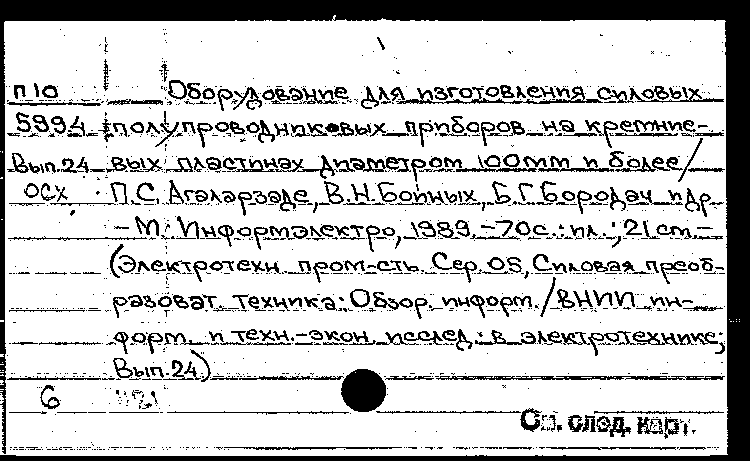 П10 Оборудование для изготовления силовых
5994 полупроводниковых приборов на кремние-
Вып.24 вых пластинах диаметром 100мм и более/
ОСХ П.С. Агаларзаде, В.Н. Бойных, Б.Г. Бородач и др.
– М.: Информэлектро, 1989. – 70с.: ил.; 21 см. –
(Электротехн. пром-сть. Сер. 05, Силовая преоб-
разоват. техника: Обзор. информ. / ВНИИ ин-
форм. и техн.-экон. исслед. в электротехнике;
Вып. 24)
6
См. след. карт.